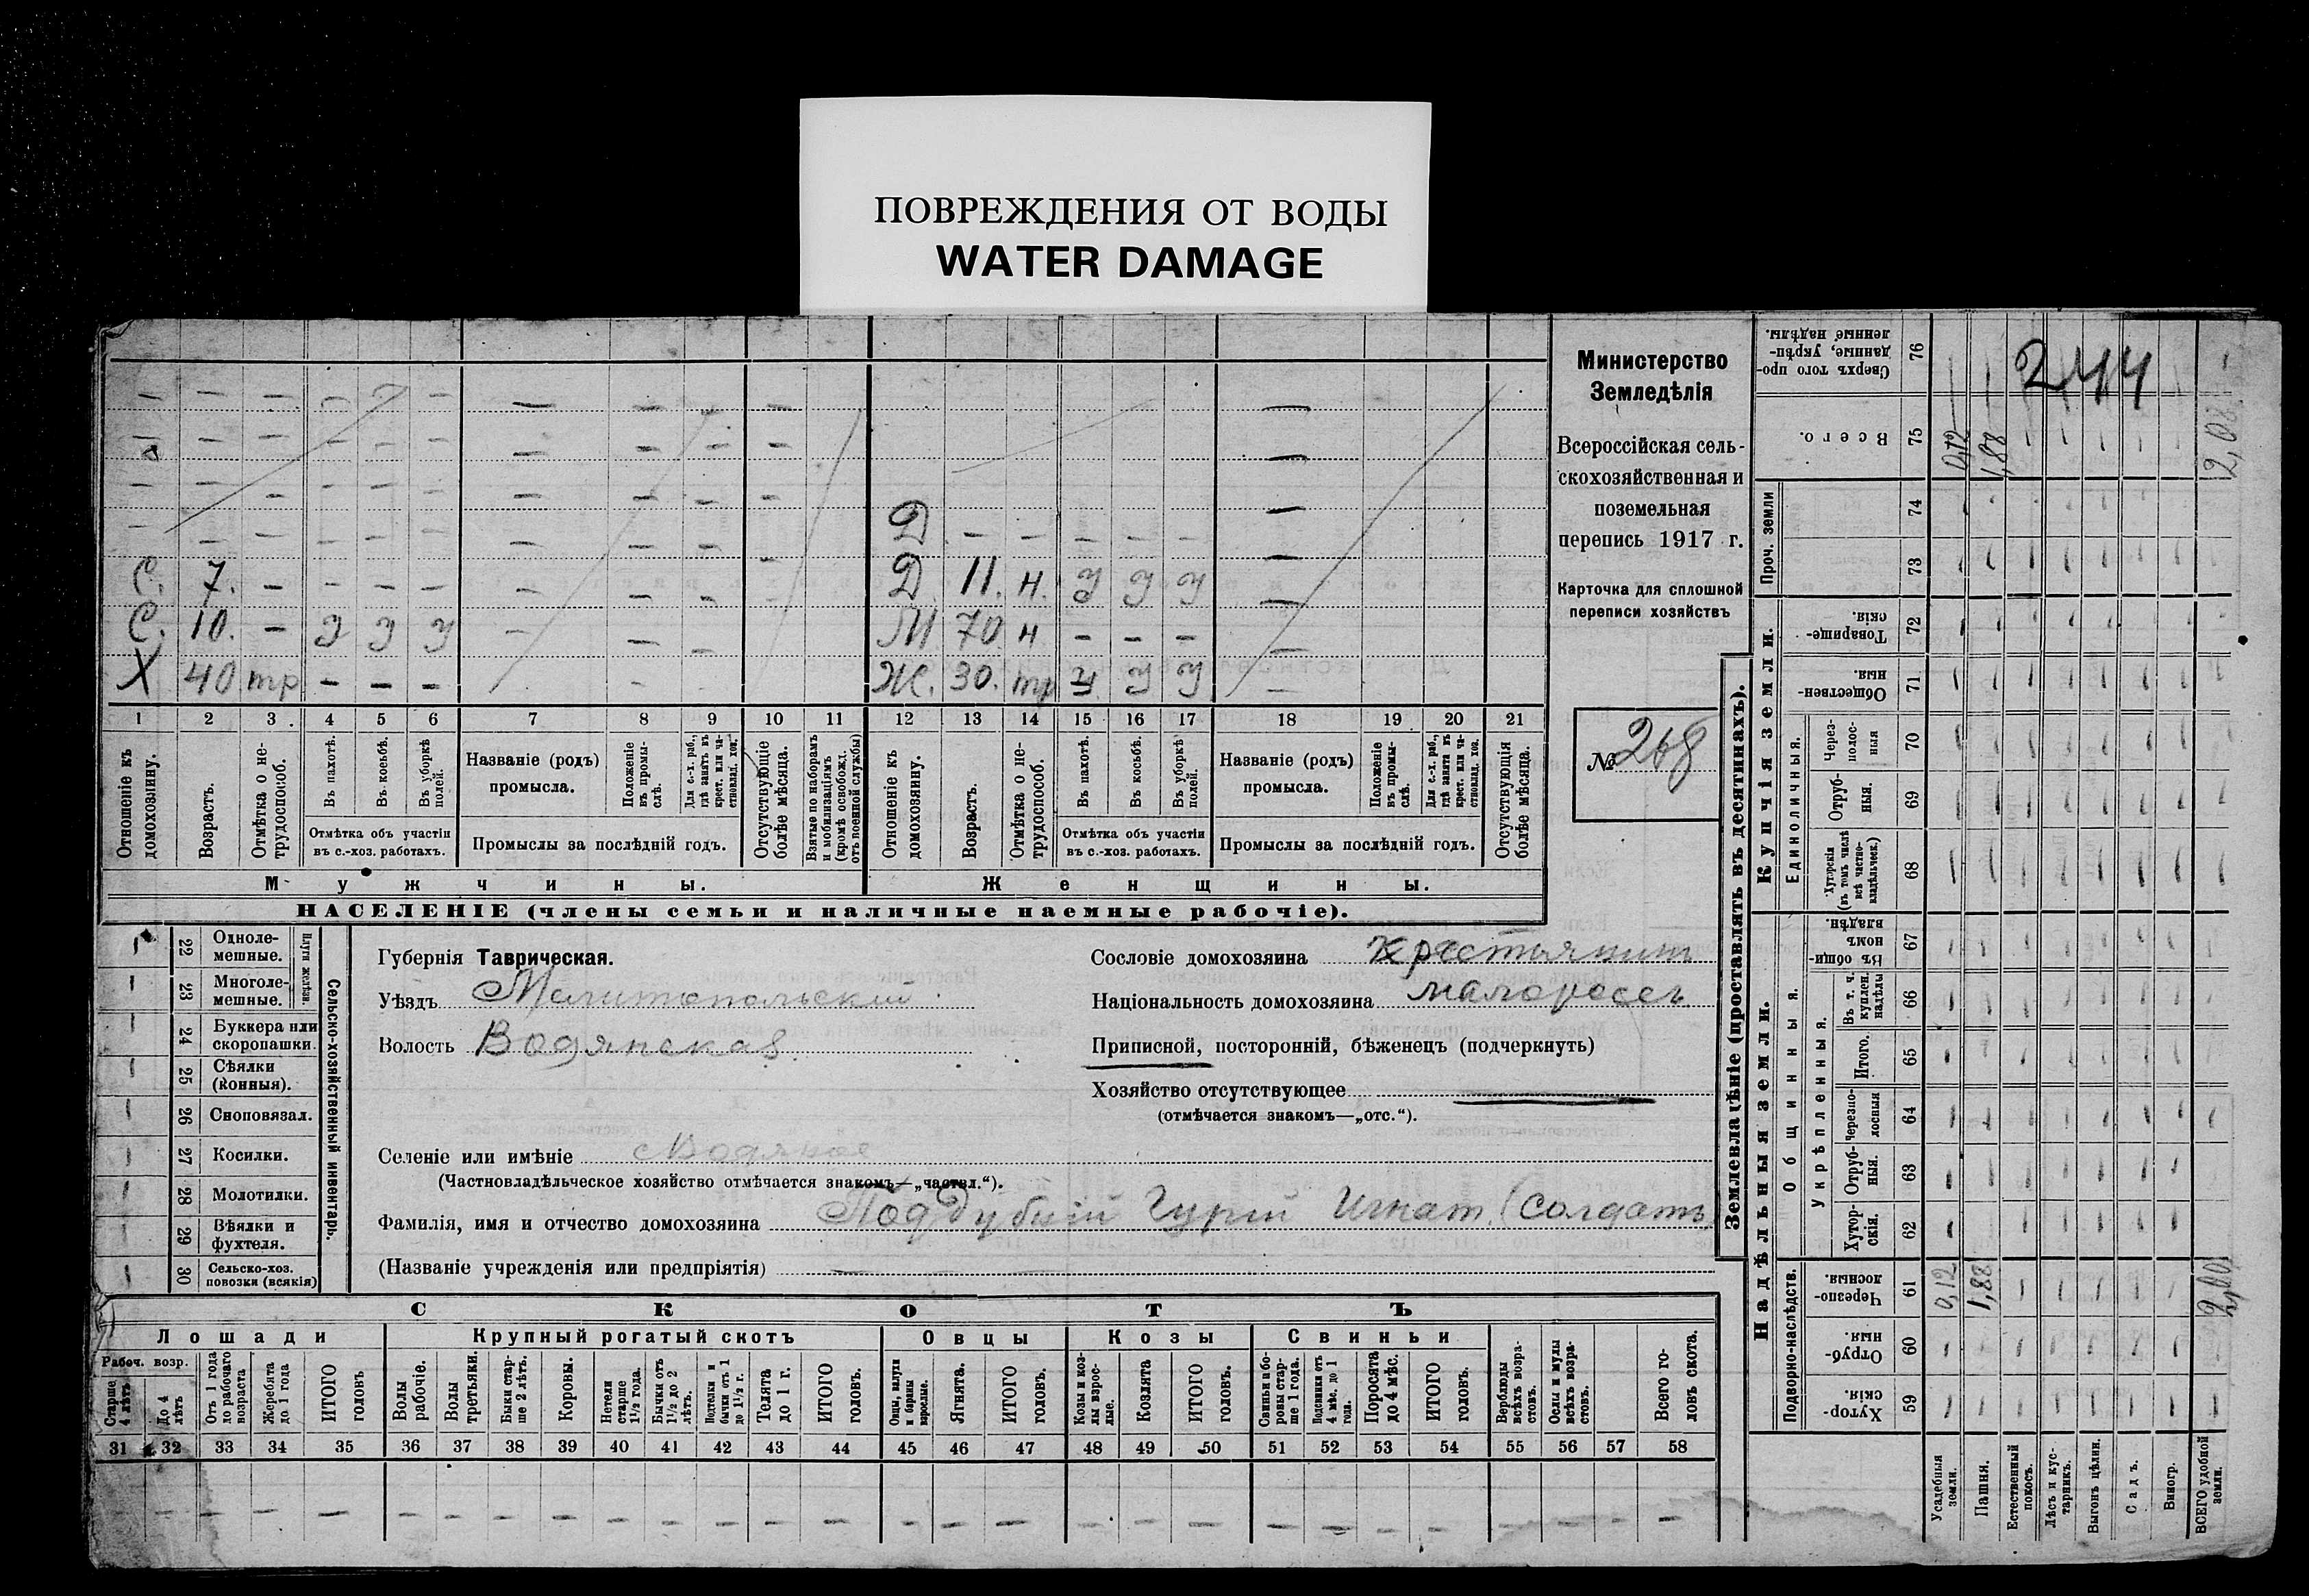 ПОВРЕЖДЕНИЯ ОТ ВОДЫ
WATER DAMAGE
Министерство
Земледѣлія
Всероссійская сель-
скохозяйственная и
поземельная
перепись 1917 г.
Карточка для сплошной
переписи хозяйствъ
№ 268
244
— — — — — — — — — — —
— — — — — — — — — —
— — — — — — — — — —
— — — — — — — — — — Д — — — — — —
С. 7. — — — — — — — — Д 11. н. У У У —
С. 10. — У У У — — — М 70 н — — — —
Х 40 тр — — — — — Ж. 30. тр У У У —
1 2 3 4 5 6 7 8 9 10 11 12 13 14 15 16 17 18 19 20 21
Отношеніе къ домохозяину.
Возрастъ.
Отмѣтка о не-трудоспособ.
Въ пахотѣ.
Въ косьбѣ.
Въ уборкѣ полей.
Отмѣтка объ участіи
въ с.-хоз. работахъ.
Названіе (родъ)
промысла.
Положеніе въ промы-слѣ.
Для с.-х. раб., гдѣ занятъ въ крест. или ча-стновлад. хоз.
Промыслы за послѣдній годъ.
Отсутствующіе болѣе мѣсяца.
Взятые по наборамъ и мобилизаціямъ (кромѣ освобожд. отъ военной службы)
Отношеніе къ домохозяину.
Возрастъ.
Отмѣтка о не-трудоспособ.
Въ пахотѣ.
Въ косьбѣ.
Въ уборкѣ полей.
Отмѣтка объ участіи
въ с.-хоз. работахъ.
Названіе (родъ)
промысла.
Положеніе въ промы-слѣ.
Для с.-х. раб., гдѣ занята въ крест. или ча-стновлад. хоз.
Промыслы за послѣдній годъ.
Отсутствующія болѣе мѣсяца.
Мужчины.
Женщины.
НАСЕЛЕНІЕ (члены семьи и наличные наемные рабочіе).
Сельско-хозяйственный инвентарь.
Плуги желѣзн.
22 Одноле-мешные.
23 Многоле-мешные.
24 Буккера или скоропашки.
25 Сѣялки (конныя).
26 Сноповязал.
27 Косилки.
28 Молотилки.
29 Вѣялки и фухтеля.
30 Сельско-хоз. повозки (всякія)
Губернія Таврическая.
Уѣздъ Мелитопольский
Волость Водянская
Сословіе домохозяина крестьянин
Національность домохозяина малороссъ
Приписной, посторонній, бѣженецъ (подчеркнуть)
Хозяйство отсутствующее
(отмѣчается знакомъ—„отс.“).
Селеніе или имѣніе Водяное
(Частновладѣльческое хозяйство отмѣчается знакомъ—„частвл.“).
Фамилія, имя и отчество домохозяина Поддубный Гурий Игнат. (солдатъ)
(Названіе учрежденія или предпріятія) —
СКОТЪ
Лошади
Крупный рогатый скотъ
Овцы
Козы
Свиньи
Рабоч. возр.
Старше 4 лѣтъ
До 4 лѣтъ
Отъ 1 года до рабочаго возраста
Жеребята до 1 года
ИТОГО головъ
Волы рабочіе.
Волы третьяки.
Быки стар-ше 2 лѣтъ.
Коровы.
Нетели старше 1½ года.
Бычки отъ 1½ до 2 лѣтъ.
Подтелки и бычки отъ 1 до 1½ г.
Телята до 1 г.
ИТОГО головъ.
Овцы, валухи и бараны взрослые.
Ягнята.
ИТОГО головъ.
Козы и коз-лы взрос-лые.
Козлята
ИТОГО головъ.
Свиньи и бо-ровы стар-ше 1 года.
Подсвинки отъ 4 мѣс. до 1 года.
Поросята до 4 мѣс.
ИТОГО головъ.
Верблюды всѣхъ возра-стовъ.
Ослы и мулы всѣхъ возра-стовъ.
Всего го-ловъ скота.
31 32 33 34 35 36 37 38 39 40 41 42 43 44 45 46 47 48 49 50 51 52 53 54 55 56 57 58
— — — — — — — — — — — — — — — — — — — — — — — — — — — —
Землевладѣніе (проставлять въ десятинахъ).
Надѣльныя земли.
Купчія земли.
Проч. земли
Подворно-наслѣдств.
Общинныя.
Укрѣпленныя.
Единоличныя.
Сверхъ того про-данные, укрѣп-ленные надѣлы. 76
Всего. 75 0,12 1,88 2,08
74
73
Товарище-скія. 72
Обществен-ныя. 71
Через-полос-ныя 70
Отруб-ныя. 69
Хуторскія (въ томъ числѣ всѣ частно-владѣльческ.) 68
Въ общин-номъ владѣн. 67
Въ т. ч. куплен. надѣлы 66
Итого. 65
Черезпо-лосныя 64
Отруб-ныя. 63
Хутор-скія. 62
Черезпо-лосныя. 61 0,12 1,88 2,00
Отруб-ныя. 60
Хутор-скія. 59
Усадебныя земли.
Пашня.
Естественный покосъ.
Лѣсъ и кус-тарникъ.
Выгонъ цѣлин.
Садъ.
Виногр.
ВСЕГО удобной земли.